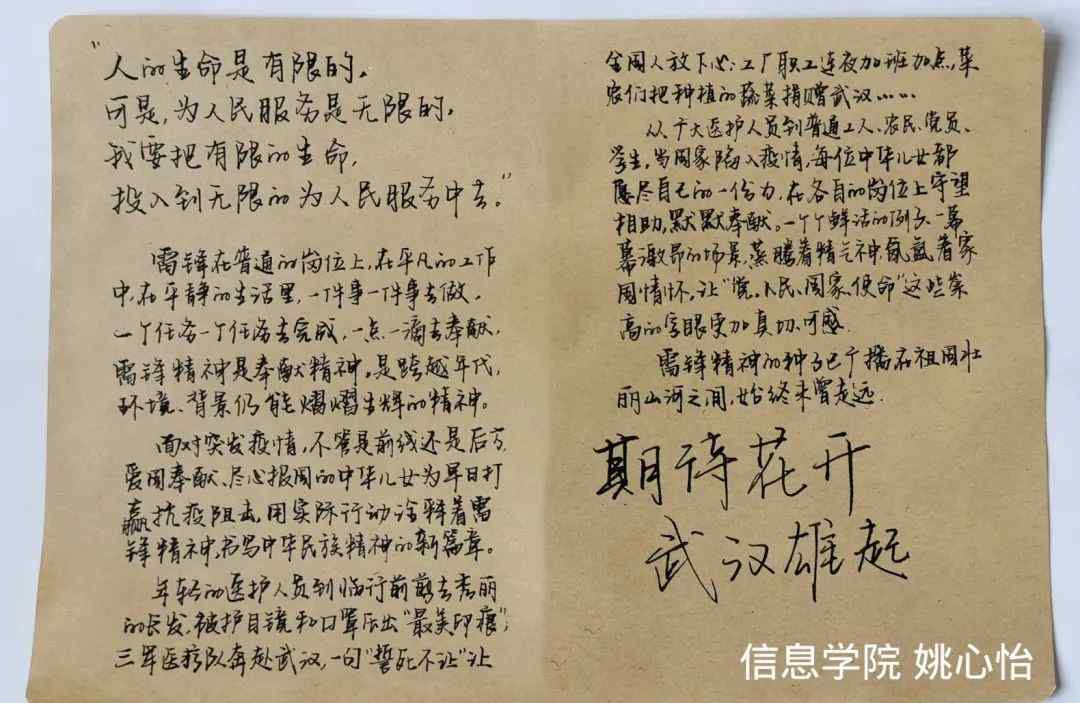 “人的生命是有限的,
可是,为人民服务是无限的,
我要把有限的生命,
投入到无限的为人民服务中去。”
雷锋在普通的岗位上,在平凡的工作
中,在平静的生活里,一件事一件事去做,
一个任务一个任务去完成,一点一滴去奉献,
雷锋精神是奉献精神。是跨越年代、
环境、背景仍能熠熠生辉的精神。
面对突发疫情,不管是前线还是后方,
爱国奉献、尽心报国的中华儿女为早日打
赢抗疫阻击,用实际行动诠释着雷
锋精神,书写中华民族精神的新篇章。
年轻的医护人员到临行前剪去秀丽
的长发,被护目镜和口罩压出“最美印痕”;
三军医疗队奔赴武汉,一句“誓死不让”让
全国人放下心;工厂职工连夜加班加点,菜
农们把种植的蔬菜捐赠武汉……
从广大医护人员到普通工人、农民、党员、
学生,当国家陷入疫情,每位中华儿女都
尽自己的一份力,在各自的岗位上守望
相助,默默奉献。一个个鲜活的例子、一幕
幕激昂的场景,蒸腾着精气神,氤氲着家
国情怀,让“党、人民、国家、使命”这些崇
高的字眼更加真切、可感.
雷锋精神的种子已广播在祖国壮
丽山河之间,始终未曾走远.
期待花开
武汉雄起
信息学院 姚心怡